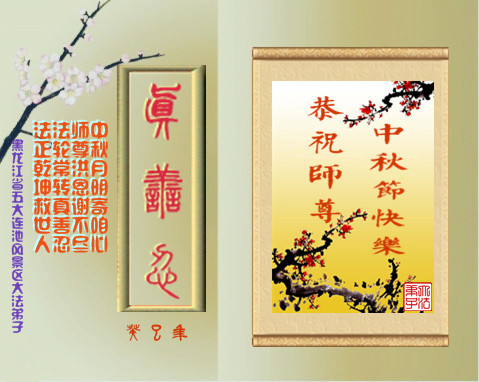 恭祝師尊
中秋節快樂
眞善忍
癸巳年
中秋月明寄咱心
师尊洪恩谢不尽
法轮常转真善忍
法正乾坤救世人
黑龙江省五大连池风景区大法弟子